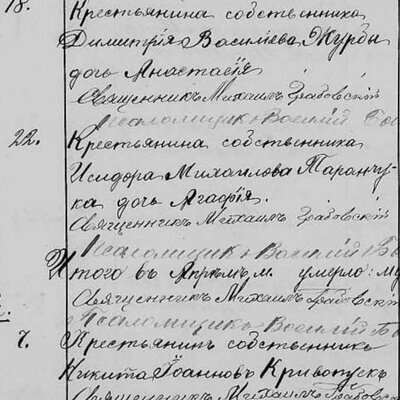 18. Крестьянина собственника
Димитрія Василіева Журбы
дочь Анастасія
Священникъ Михаилъ Грабовскій
Псаломщикъ Василій
22. Крестьянина собственника
Исидора Михаилова Таранчу-
ка дочь Агафія.
Священникъ Михаилъ Грабовскій
Псаломщикъ Василій
Итого въ Апрѣлѣ м. умерло: му
Священникъ Михаилъ Грабовскій
Псаломщикъ Василій
7. Крестьянинъ собственникъ
Никита Іоанновъ Кривопускъ
Священникъ Михаилъ Грабовскі